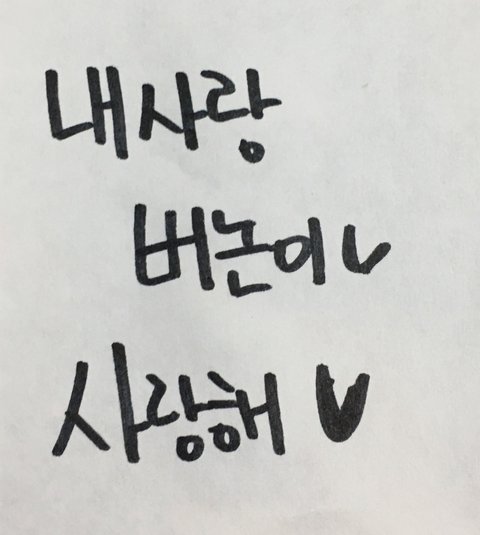 내 사랑
버논이♥
사랑해 ♥